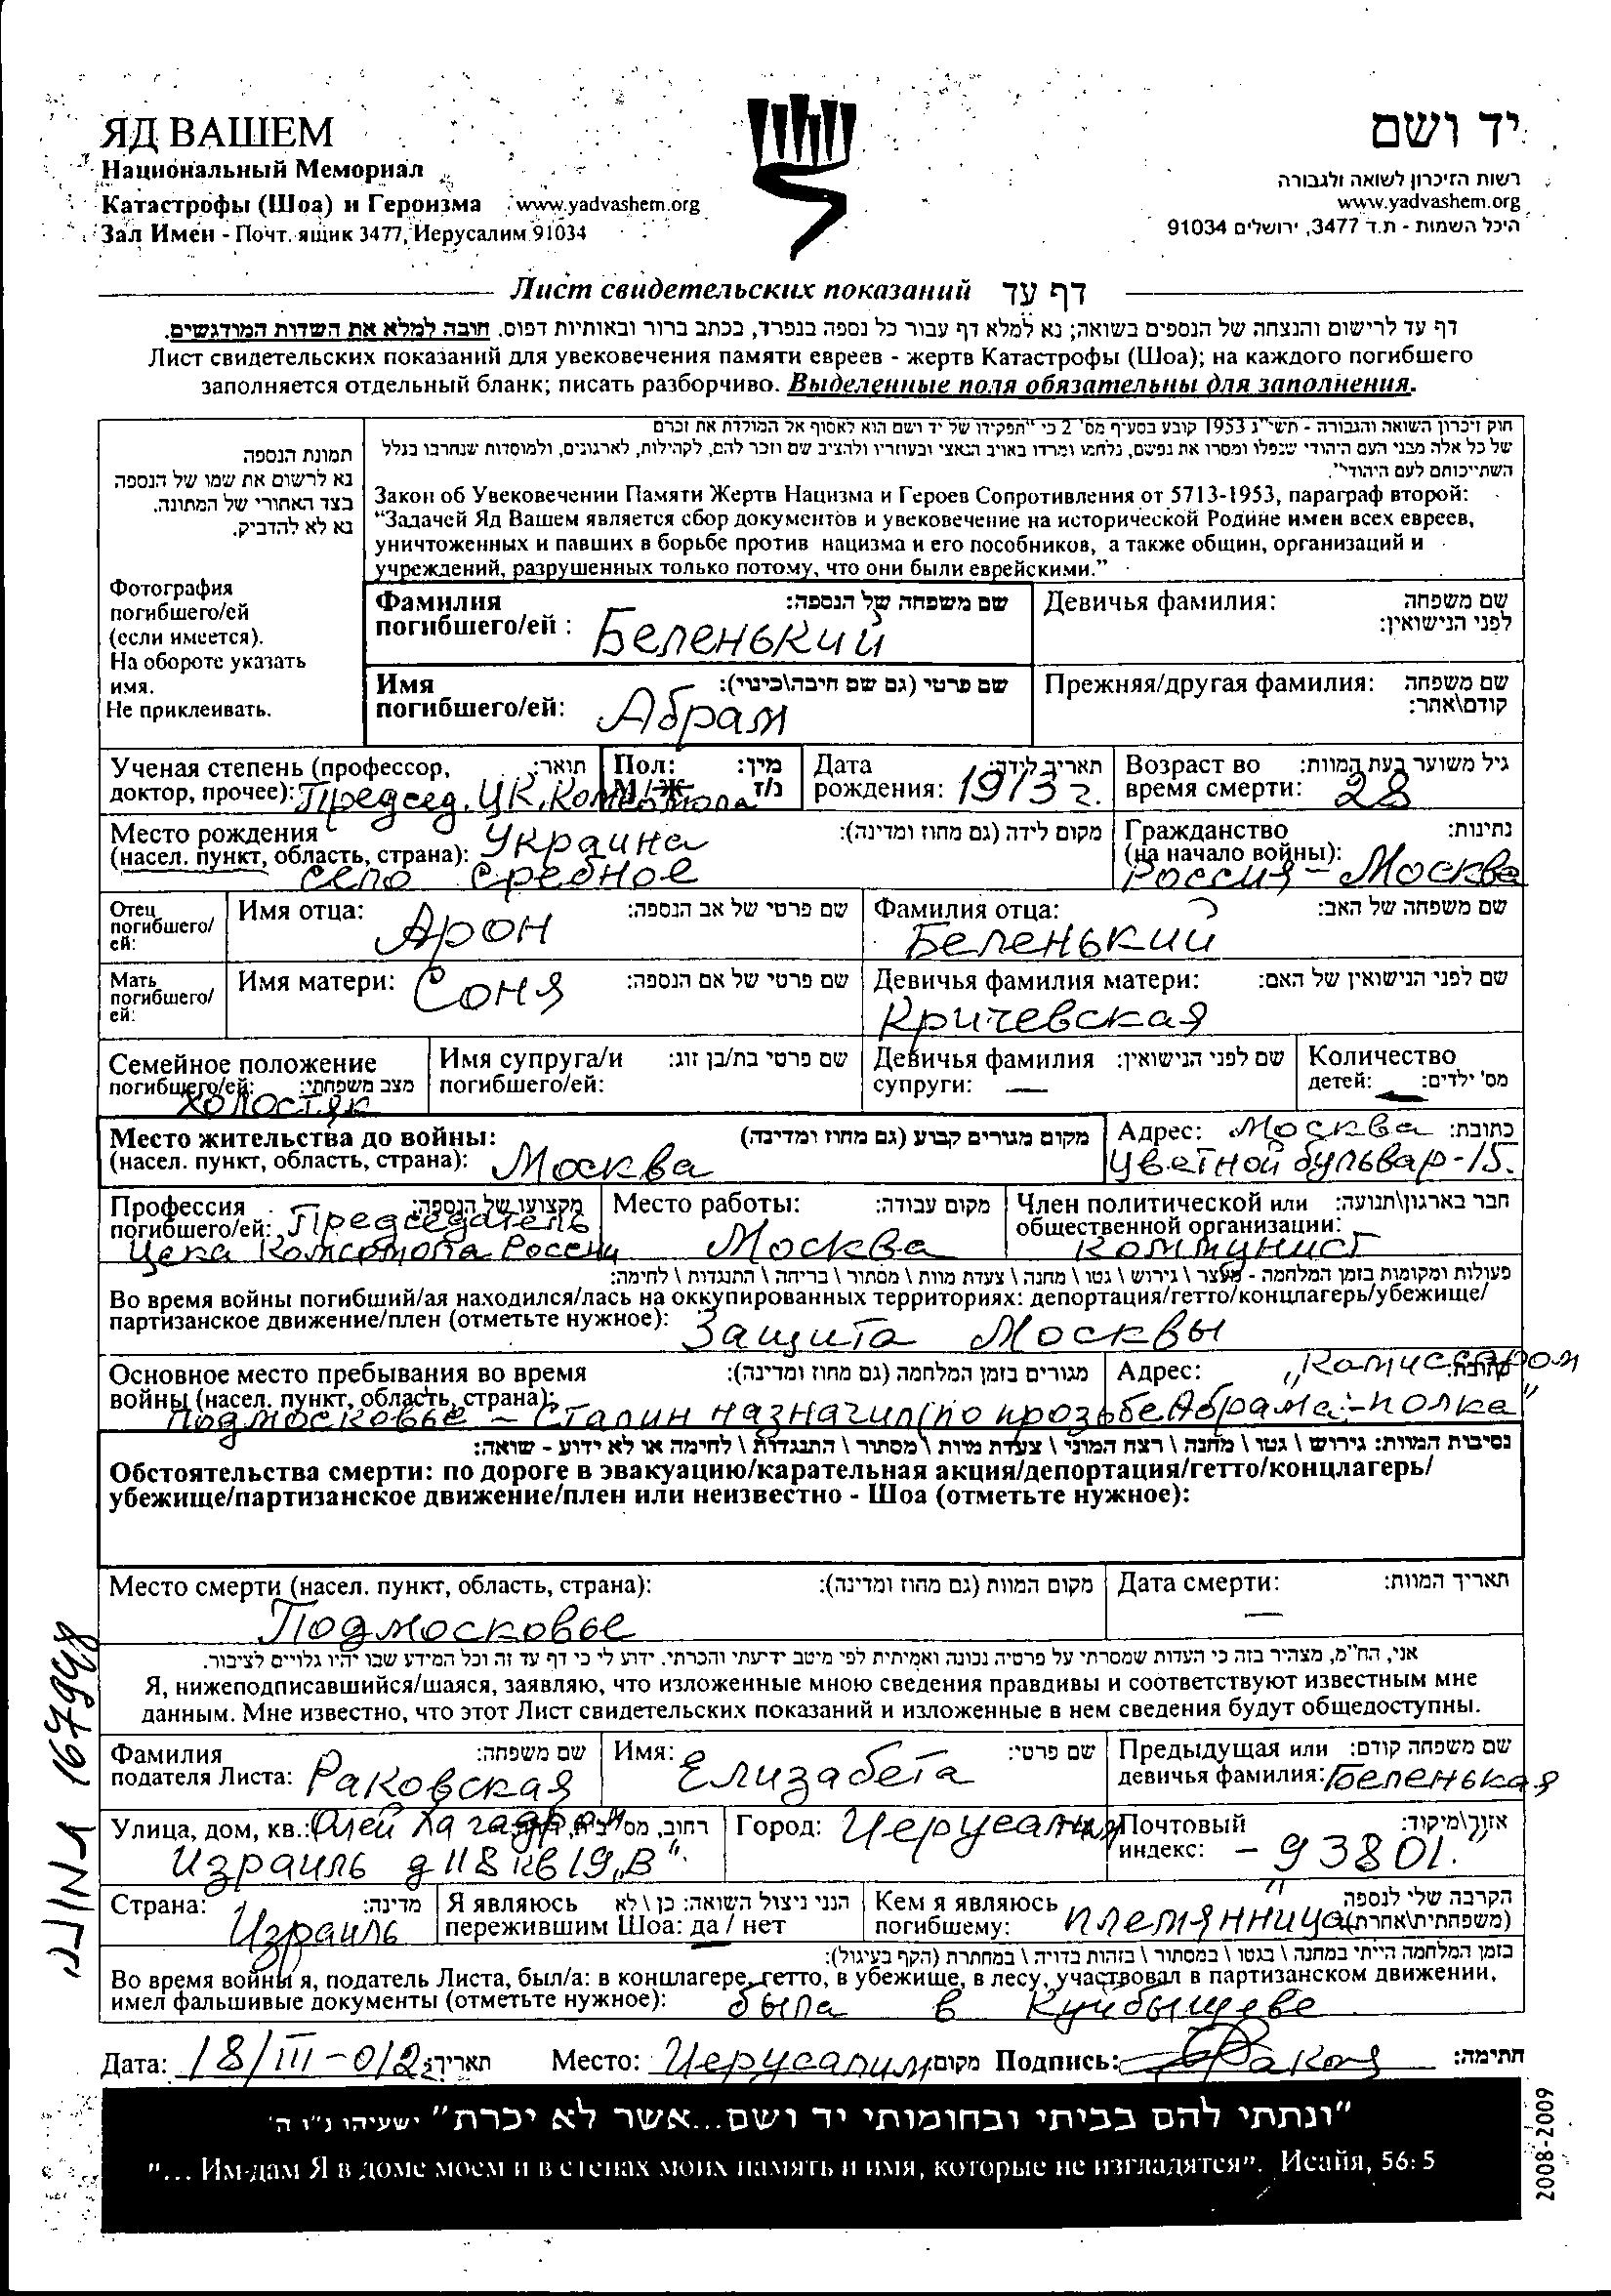 ЯД ВАШЕМ
Национальный Мемориал
Катастрофы (Шоа) и Героизма www.yadvashem.org
Зал Имен - Почт. ящик 3477, Иерусалим 91034
יד ושם
רשות הזיכרון לשואה ולגבורה
www.yadvashem.org
היכל השמות - ת.ד 3477, ירושלים 91034
Лист свидетельских показаний דף עד
דף עד לרישום והנצחה של הנספים בשואה; נא למלא דף עבור כל נספה בנפרד, בכתב ברור ובאותיות דפוס. חובה למלא את השדות המודגשים.
Лист свидетельских показаний для увековечения памяти евреев - жертв Катастрофы (Шоа); на каждого погибшего
заполняется отдельный бланк; писать разборчиво. Выделенные поля обязательны для заполнения.
תמונת הנספה
נא לרשום את שמו של הנספה
בצד האחורי של המתונה.
נא לא להדביק.
Фотография
погибшего/ей
(если имеется).
На обороте указать
имя.
Не приклеивать.
חוק זיכרון השואה והגבורה - תשי"ג 1953 קובע בסעיף מס' 2 כי "תפקידו של יד ושם הוא לאסוף אל המולדת את זכרם
של כל אלה מבני העם היהודי שנפלו ומסרו את נפשם, נלחמו ומרדו באויב הנאצי ובעוזריו ולהציב שם וזכר להם, לקהילות, לארגונים, ולמוסדות שנחרבו בגלל
השתייכותם לעם היהודי".
Закон об Увековечении Памяти Жертв Нацизма и Героев Сопротивления от 5713-1953, параграф второй:
"Задачей Яд Вашем является сбор документов и увековечение на исторической Родине имен всех евреев,
уничтоженных и павших в борьбе против нацизма и его пособников, а также общин, организаций и
учреждений, разрушенных только потому, что они были еврейскими."
Фамилия שם משפחה של הנספה:
погибшего/ей : Беленький
Девичья фамилия: שם משפחה
לפני הנישואין:
Имя שם פרטי (גם שם חיבה\כינוי):
погибшего/ей: Абрам
Прежняя/другая фамилия: שם משפחה
קודם\אחר:
Ученая степень (профессор, תואר:
доктор, прочее): Председ. ЦК. Комсомола
Пол: מין:
М / Ж נ/ז
Дата תאריך לידה:
рождения: 1913 г.
Возраст во גיל משוער בעת המוות:
время смерти: 28
Место рождения מקום לידה (גם מחוז ומדינה):
(насел. пункт, область, страна): Украина
село Сребное
Гражданство נתינות:
(на начало войны):
Россия - Москва
Отец
погибшего/
ей:
Имя отца: Арон שם פרטי של אב הנספה:
Фамилия отца: שם משפחה של האב:
Беленький
Мать
погибшего/
ей:
Имя матери: Соня שם פרטי של אם הנספה:
Девичья фамилия матери: שם לפני הנישואין של האם:
Кричевская
Семейное положение
погибшего/ей: מצב משפחתי:
холостяк
Имя супруга/и שם פרטי בת/בן זוג:
погибшего/ей:
Девичья фамилия שם לפני הנישואין:
супруги: —
Количество
детей: — מס' ילדים:
Место жительства до войны: מקום מגורים קבוע (גם מחוז ומדינה)
(насел. пункт, область, страна): Москва
Адрес: Москва כתובת:
Цветной бульвар-15.
Профессия מקצועו של הנספה:
погибшего/ей: Председатель
Цека Комсомола России
Место работы: מקום עבודה:
Москва
Член политической или חבר בארגון\תנועה:
общественной организации:
Коммунист
פעולות ומקומות בזמן המלחמה - מעצר \ גירוש \ גטו \ מחנה \ צעדת מוות \ מסתור \ בריחה \ התנגדות \ לחימה:
Во время войны погибший/ая находился/лась на оккупированных территориях: депортация/гетто/концлагерь/убежище/
партизанское движение/плен (отметьте нужное): Защита Москвы
Основное место пребывания во время מגורים בזמן המלחמה (גם מחוז ומדינה):
войны (насел. пункт, область, страна):
Адрес: „Комиссаром כתובת:
Подмосковье - Сталин назначил (по прозьбе Абрама - полка"
נסיבות המוות: גירוש \ גטו \ מחנה \ רצח המוני \ צעדת מוות \ מסתור \ התנגדות \ לחימה או לא ידוע - שואה:
Обстоятельства смерти: по дороге в эвакуацию/карательная акция/депортация/гетто/концлагерь/
убежище/партизанское движение/плен или неизвестно - Шоа (отметьте нужное):
Место смерти (насел. пункт, область, страна): מקום המוות (גם מחוז ומדינה):
Подмосковье
Дата смерти: תאריך המוות:
—
אני, הח"מ, מצהיר בזה כי העדות שמסרתי על פרטיה נכונה ואמיתית לפי מיטב ידיעתי והכרתי. ידוע לי כי דף עד זה וכל המידע שבו יהיו גלויים לציבור.
Я, нижеподписавшийся/шаяся, заявляю, что изложенные мною сведения правдивы и соответствуют известным мне
данным. Мне известно, что этот Лист свидетельских показаний и изложенные в нем сведения будут общедоступны.
Фамилия שם משפחה:
подателя Листа: Раковская
Имя: Елизабета שם פרטי:
Предыдущая или שם משפחה קודם:
девичья фамилия: Беленькая
Улица, дом, кв.: Олей Хагардом רחוב, מס'
Израиль д 118 кв 19 „В".
Город: Иерусалим
Почтовый אזור\מיקוד:
индекс: - 93801."
Страна: מדינה:
Израиль
Я являюсь הנני ניצול השואה: כן \ לא
пережившим Шоа: да / нет
Кем я являюсь הקרבה שלי לנספה
погибшему: племянница (משפחתית\אחרת):
בזמן המלחמה הייתי במחנה \ בגטו \ במסתור \ בזהות בדויה \ במחתרת (הקף בעיגול):
Во время войны я, податель Листа, был/а: в концлагере, гетто, в убежище, в лесу, участвовал в партизанском движении,
имел фальшивые документы (отметьте нужное): была в Куйбышеве
Дата: 18/III-012г תאריך: Место: Иерусалим מקום Подпись: חתימה:
"ונתתי להם בביתי ובחומותי יד ושם...אשר לא יכרת" ישעיהו נ"ו ה'
"... Им дам Я в доме моем и в стенах моих память и имя, которые не изгладятся". Исайя, 56: 5
2008-2009
167998